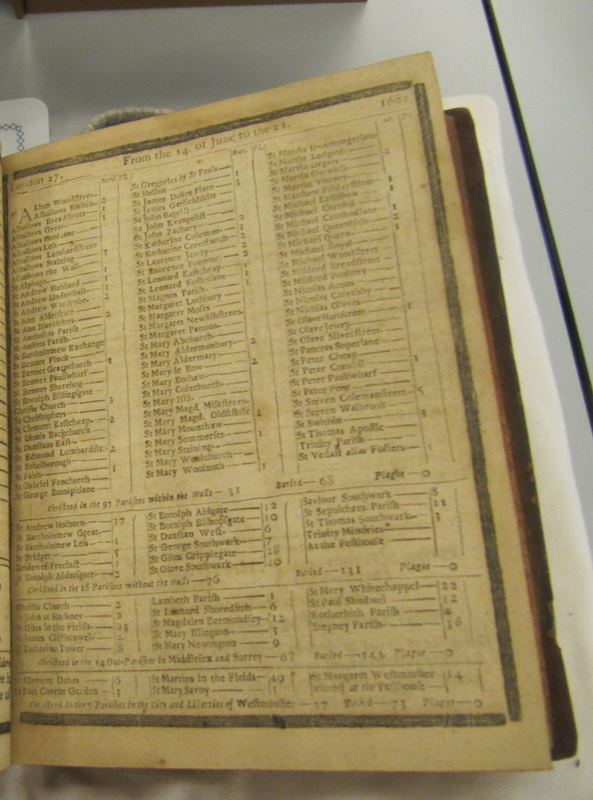 London 27. From the 14 of June to the 21. 168
Bur. Pl. Bur. Pl. Bur. Pl.
St Albans Woodstreet
Alhallows Barkin
Alhallows Breadstreet
Alhallows Great
Alhallows Honilane
Alhallows Less
Alhallows Lumbardstreet
Alhallows Staining
Alhallows the Wall
St Alphage
St Andrew Hubbard
St Andrew Undershaft
St Andrew Wardrobe
St Ann Aldersgate
St Ann Blackfriers
St Antholins Parish
St Austins Parish
St Bartholomew Exchange
St Bennet Finck
St Bennet Gracechurch
St Bennet Paulswharf
St Bennet Sherehog
St Botolph Billingsgate
Christs Church
St Christophers
St Clement Eastcheap
St Dionis Backchurch
St Dunstans East
St Edmund Lumbardstr.
St Ethelborough
St Faith
St Gabriel Fenchurch
St George Botolphlane
St Gregories by St Pauls
St Hellen
St James Dukes Place
St James Garlickhithe
St John Baptist
St John Evangelist
St John Zachary
St Katherine Coleman
St Katharine Creechurch
St Laurence Jewry
St Laurence Pountney
St Leonard Eastcheap
St Leonard Fosterlane
St Magnus Parish
St Margaret Lothbury
St Margaret Moses
St Margaret Newfishstreet
St Margaret Pattons
St Mary Abchurch
St Mary Aldermanbury
St Mary Aldermary
St Mary le Bow
St Mary Bothaw
St Mary Colechurch
St Mary Hill
St Mary Magd. Milkstreet
St Mary Magd. Oldfishstr
St Mary Mounthaw
St Mary Sommerset
St Mary Staining
St Mary Woolchurch
St Mary Woolnoth
St Martins Ironmongerlane
St Martin Ludgate
St Martin Orgars
St Martin Outwich
St Martin Vintrey
St Matthew Fridaystreet
St Michael Bassishaw
St Michael Cornhil
St Michael Crookedlane
St Michael Queenhithe
St Michael Quern
St Michael Royal
St Michael Woodstreet
St Mildred Breadstreet
St Mildred Poultrey
St Nicolas Acons
St Nicolas Coleabby
St Nicolas Olaves
St Olave Hartstreet
St Olave Jewry
St Olave Silverstreet
St Pancras Soperlane
St Peter Cheap
St Peter Cornhil
St Peter Paulswharf
St Peter Poor
St Steven Colemanstreet 5
St Steven Walbrook
St Swithin
St Thomas Apostle
Trinity Parish
St Vedast alias Fosters
Christned in the 97 Parishes within the Walls — 33 Buried — 68 Plague — 0
St Andrew Holborn 17
St Bartholomew Great
St Bartholomew Less 1
St Bridget 5
Bridewel Precinct 1
St Botolph Aldersgate 2
St Botolph Aldgate 12
St Botolph Bishopsgate 10
St Dunstan West 6
St George Southwark 7
St Giles Cripplegate 28
St Olave Southwark 20
Saviour Southwark 8
St Sepulchres Parish 11
St Thomas Southwark 3
Trinity Minories
At the Pesthouse
Christned in the 16 Parishes without the Walls — 76 Buried — 131 Plague — 0
Christs Church 2
St John at Hackney 2
St Giles in the Fields 23
St James Clerkenwel
St Katharine Tower 8
Lambeth Parish
St Leonard Shoreditch 6
St Magdalen Bermondsey 12
St Mary Islington
St Mary Newington 9
St Mary Whitechappel 22
St Paul Shadwel 12
Rotherhith Parish 4
Stepney Parish 36
Christned in the 14 Out-Parishes in Middlesex and Surrey — 63 Buried — Plague — 0
St Clement Danes 6
St Paul Covent Garden
St Martins in the Fields 49
St Mary Savoy 1
St Margaret Westminster 14
whereof at the Pesthouse
Christned in the 5 Parishes in the City and Liberties of Westminster — 37 Buried — 73 Plague — 0